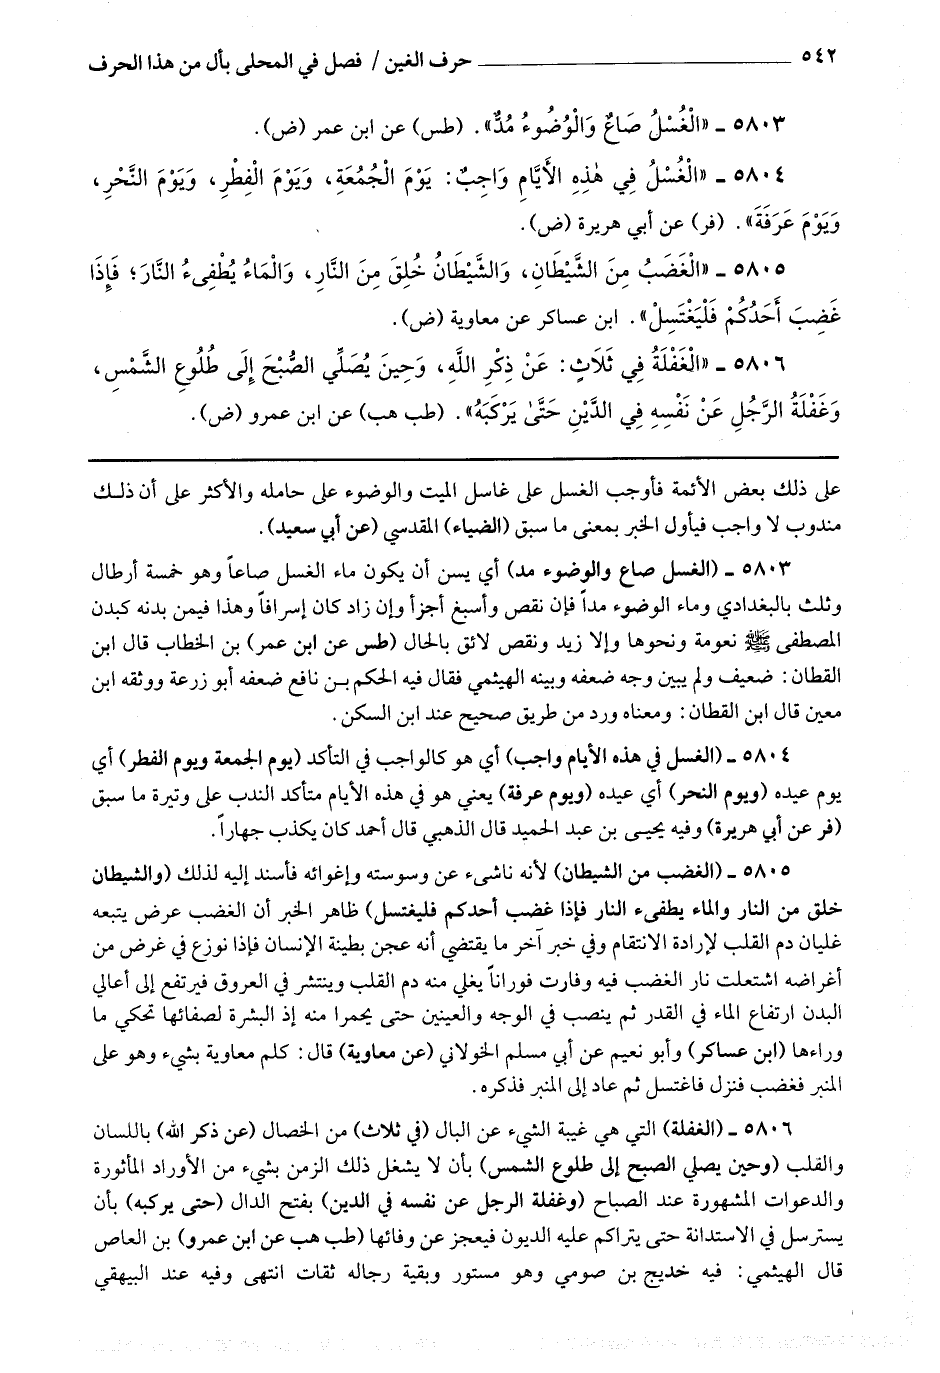 ٥٤٢ ــــــــــــــــــــ حرف الغين / فصل في المحلى بأل من هذا الحرف
٥٨٠٣ ـ «الْغُسْلُ صَاعٌ وَالْوُضُوءُ مُدٌّ». (طس) عن ابن عمر (ض).
٥٨٠٤ ـ «الْغُسْلُ فِي هٰذِهِ الأَيَّامِ وَاجِبٌ: يَوْمَ الْجُمُعَةِ، وَيَوْمَ الْفِطْرِ، وَيَوْمَ النَّحْرِ،
وَيَوْمَ عَرَفَةَ». (فر) عن أبي هريرة (ض).
٥٨٠٥ ـ «الْغَضَبُ مِنَ الشَّيْطَانِ، وَالشَّيْطَانُ خُلِقَ مِنَ النَّارِ، وَالْمَاءُ يُطْفِىءُ النَّارَ؛ فَإِذَا
غَضِبَ أَحَدُكُمْ فَلْيَغْتَسِلْ». ابن عساكر عن معاوية (ض).
٥٨٠٦ ـ «الْغَفْلَةُ فِي ثَلَاثٍ: عَنْ ذِكْرِ اللَّهِ، وَحِينَ يُصَلِّي الصُّبْحَ إِلَى طُلُوعِ الشَّمْسِ،
وَغَفْلَةُ الرَّجُلِ عَنْ نَفْسِهِ فِي الدَّيْنِ حَتَّىٰ يَرْكَبَهُ». (طب هب) عن ابن عمرو (ض).
على ذلك بعض الأئمة فأوجب الغسل على غاسل الميت والوضوء على حامله والأكثر على أن ذلك
مندوب لا واجب فيأول الخبر بمعنى ما سبق (الضياء) المقدسي (عن أبي سعيد).
٥٨٠٣ ـ (الغسل صاع والوضوء مد) أي يسن أن يكون ماء الغسل صاعاً وهو خمسة أرطال
وثلث بالبغدادي وماء الوضوء مداً فإن نقص وأسبغ أجزأ وإن زاد كان إسرافاً وهذا فيمن بدنه كبدن
المصطفى ﷺ نعومة ونحوها وإلا زيد ونقص لائق بالحال (طس عن ابن عمر) بن الخطاب قال ابن
القطان: ضعيف ولم يبين وجه ضعفه وبينه الهيثمي فقال فيه الحكم بن نافع ضعفه أبو زرعة ووثقه ابن
معين قال ابن القطان: ومعناه ورد من طريق صحيح عند ابن السكن.
٥٨٠٤ ـ (الغسل في هذه الأيام واجب) أي هو كالواجب في التأكد (يوم الجمعة ويوم الفطر) أي
يوم عيده (ويوم النحر) أي عيده (ويوم عرفة) يعني هو في هذه الأيام متأكد الندب على وتيرة ما سبق
(فر عن أبي هريرة) وفيه يحيى بن عبد الحميد قال الذهبي قال أحمد كان يكذب جهاراً.
٥٨٠٥ ـ (الغضب من الشيطان) لأنه ناشىء عن وسوسته وإغوائه فأسند إليه لذلك (والشيطان
خلق من النار والماء يطفىء النار فإذا غضب أحدكم فليغتسل) ظاهر الخبر أن الغضب عرض يتبعه
غليان دم القلب لإرادة الانتقام وفي خبر آخر ما يقتضي أنه عجن بطينة الإنسان فإذا نوزع في غرض من
أغراضه اشتعلت نار الغضب فيه وفارت فوراناً يغلي منه دم القلب وينتشر في العروق فيرتفع إلى أعالي
البدن ارتفاع الماء في القدر ثم ينصب في الوجه والعينين حتى يحمرا منه إذ البشرة لصفائها تحكي ما
وراءها (ابن عساكر) وأبو نعيم عن أبي مسلم الخولاني (عن معاوية) قال: كلم معاوية بشيء وهو على
المنبر فغضب فنزل فاغتسل ثم عاد إلى المنبر فذكره.
٥٨٠٦ ـ (الغفلة) التي هي غيبة الشيء عن البال (في ثلاث) من الخصال (عن ذكر الله) باللسان
والقلب (وحين يصلي الصبح إلى طلوع الشمس) بأن لا يشغل ذلك الزمن بشيء من الأوراد المأثورة
والدعوات المشهورة عند الصباح (وغفلة الرجل عن نفسه في الدين) بفتح الدال (حتى يركبه) بأن
يسترسل في الاستدانة حتى يتراكم عليه الديون فيعجز عن وفائها (طب هب عن ابن عمرو) بن العاص
قال الهيثمي: فيه خديج بن صومي وهو مستور وبقية رجاله ثقات انتهى وفيه عند البيهقي